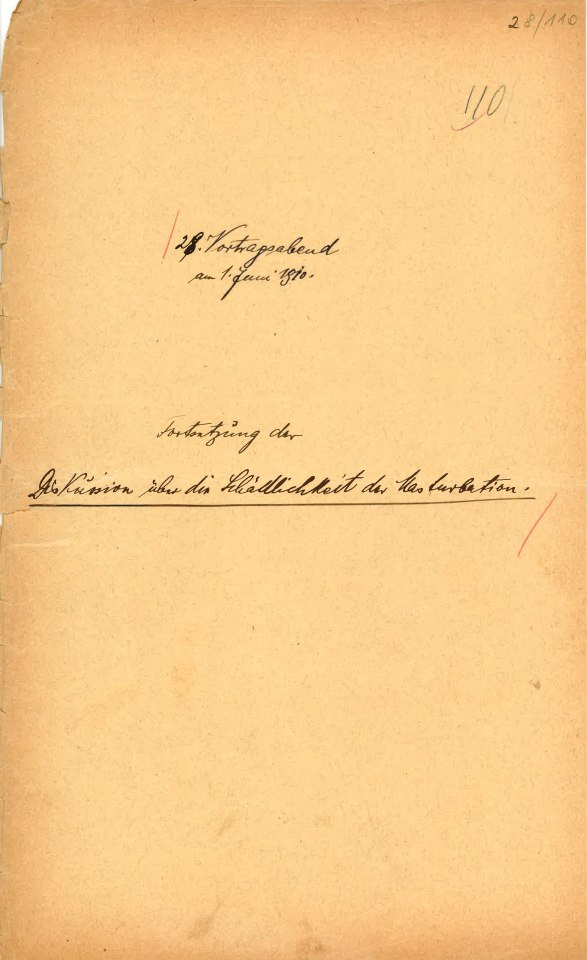 28/110
110
28. Vortragsabend
am 1. Juni 1910.
Fortsetzung der
Diskussion über die Schädlichkeit der Masturbation.